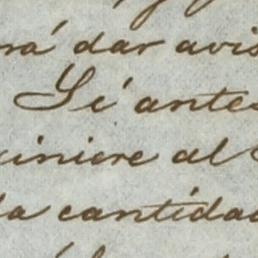 rá dar avis
Si antes
iniere al
la cantidad